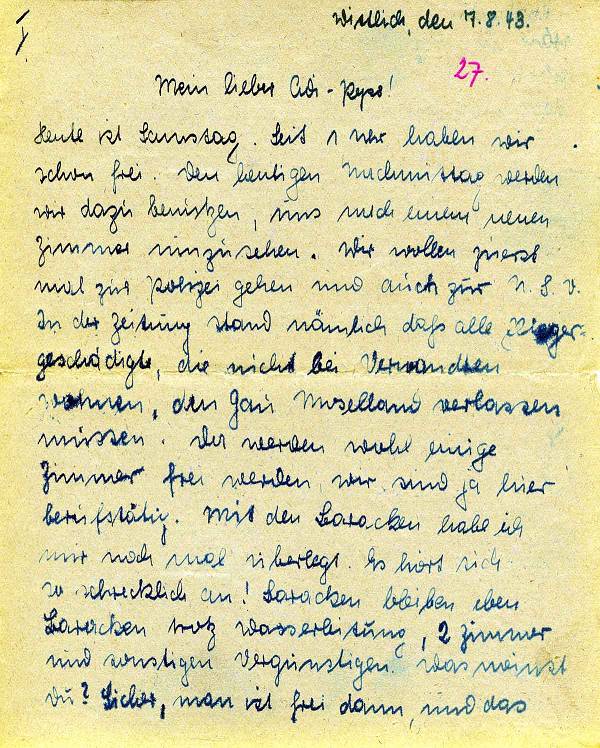 Wittlich, den 7.8.43.
27.
Mein lieber Adi-
Heute ist Samstag. Seit 1 Uhr haben wir
schon frei. Den heutigen Nachmittag werden
wir dazu benützen, uns nach einem neuen
Zimmer umzusehen. Wir wollen zuerst
mal zur Polizei gehen und auch zur N.S.V.
In der Zeitung stand nämlich daß alle Flieger-
geschädigte, die nicht bei Verwandten
wohnen, den Gau Moselland verlassen
müssen. Da werden wohl einige
Zimmer frei werden, wir sind ja hier
berufstätig. Mit den Baracken habe ich
mir noch mal überlegt. Es hört sich
so schrecklich an! Baracken bleiben eben
Baracken trotz Wasserleitung, 2 Zimmer
und sonstigen Vergünstigen. Was meinst
Du? Sicher, man ist frei dann, und das